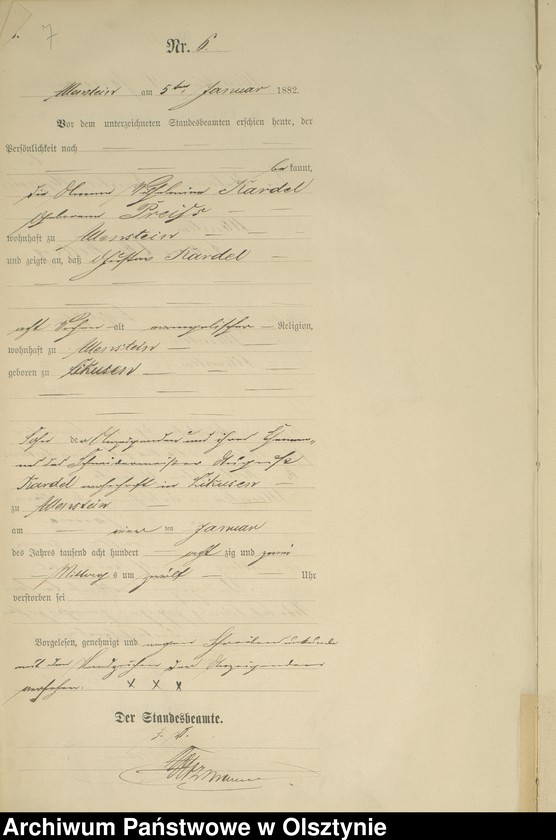 7
Nr. 6.
Allenstein am 5ten Januar 1882.
Vor dem unterzeichneten Standesbeamten erschien heute, der
Persönlichkeit nach
be kannt,
die Wilhelmine Kardel
geborene Preiß
wohnhaft zu Allenstein
und zeigte an, daß Gustav Kardel
acht Wochen alt evangelischer Religion,
wohnhaft zu Allenstein
geboren zu Likusen
Sohn der Anzeigenden und ihres Eheman-
nes des Schneidermeister August
Kardel wohnhaft in Likusen
zu Allenstein
am vier ten Januar
des Jahres tausend acht hundert acht zig und zwei
Mittags um zwölf Uhr
verstorben sei
Vorgelesen, genehmigt und wegen
mit den Handzeichen der Anzeigenden
versehen. X X X
Der Standesbeamte.
Archiwum Państwowe w Olsztynie